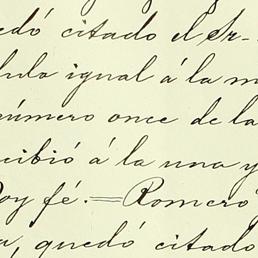 edó citado el Sr-
dula igual á la m
número once de la
cibió á la una y
Doy fé.=Romero
a, quedó citado